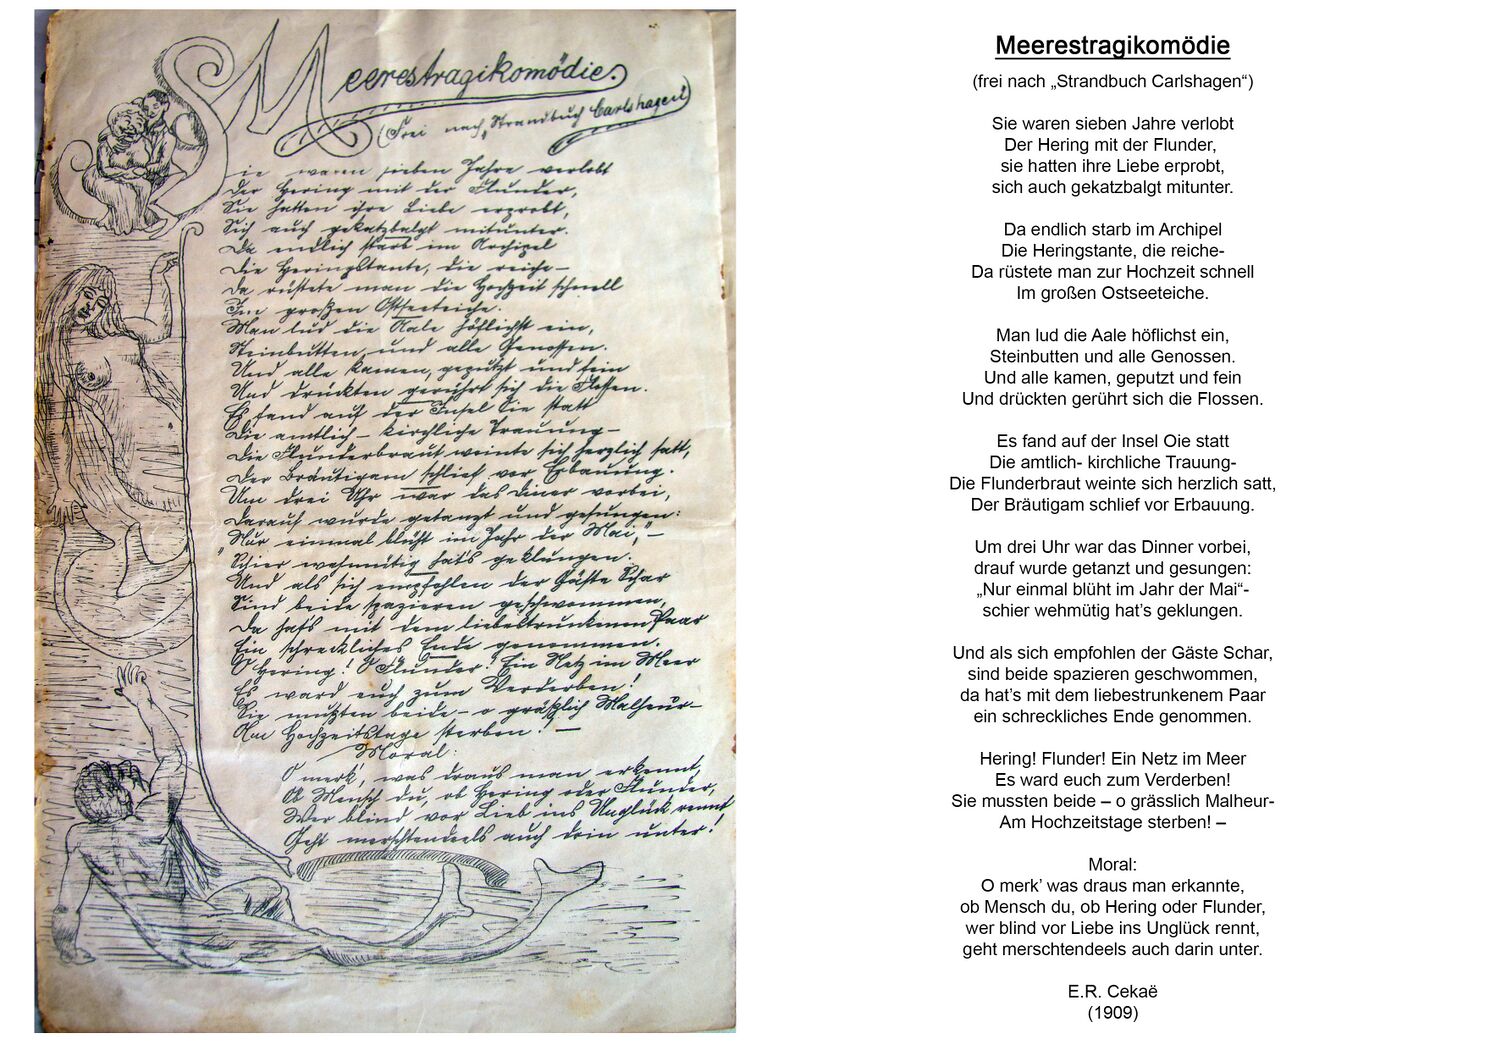 Meerestragikomödie.
(Frei nach „Strandbuch Carlshagen“)
Sie waren sieben Jahre verlobt
Der Hering mit der Flunder,
Sie hatten ihre Liebe erprobt,
Sich auch gekatzbalgt mitunter.
Da endlich starb im Archipel
Die Heringstante, die reiche –
Da rüstete man die Hochzeit schnell
Im großen Ostseeteiche.
Man lud die Aale höflichst ein,
Steinbutten und alle Genossen.
Und alle kamen, geputzt und fein
Und drückten gerührt sich die Flossen.
Es fand auf der Insel Oie statt
Die amtlich – kirchliche Trauung –
Die Flunderbraut weinte sich herzlich satt,
Der Bräutigam schlief vor Erbauung.
Um drei Uhr war das Diner vorbei,
Darauf wurde getanzt und gesungen:
„Nur einmal blüht im Jahr der Mai,“ –
Schier wehmütig hats geklungen.
Und als sich empfohlen der Gäste Schar
Sind beide spazieren geschwommen,
Da hat's mit dem liebestrunkenen Paar
Ein schreckliches Ende genommen.
O Hering! O Flunder! Ein Netz im Meer
Es ward euch zum Verderben!
Sie mußten beide – o gräßlich Malheur –
Am Hochzeitstage sterben! –
Moral:
O merk', was draus man erkennt,
Ob Mensch du, ob Hering oder Flunder,
Wer blind vor Lieb ins Unglück rennt
Geht merschtendeels auch drin unter!
Meerestragikomödie
(frei nach „Strandbuch Carlshagen“)
Sie waren sieben Jahre verlobt
Der Hering mit der Flunder,
sie hatten ihre Liebe erprobt,
sich auch gekatzbalgt mitunter.
Da endlich starb im Archipel
Die Heringstante, die reiche-
Da rüstete man zur Hochzeit schnell
Im großen Ostseeteiche.
Man lud die Aale höflichst ein,
Steinbutten und alle Genossen.
Und alle kamen, geputzt und fein
Und drückten gerührt sich die Flossen.
Es fand auf der Insel Oie statt
Die amtlich- kirchliche Trauung-
Die Flunderbraut weinte sich herzlich satt,
Der Bräutigam schlief vor Erbauung.
Um drei Uhr war das Dinner vorbei,
drauf wurde getanzt und gesungen:
„Nur einmal blüht im Jahr der Mai“-
schier wehmütig hat’s geklungen.
Und als sich empfohlen der Gäste Schar,
sind beide spazieren geschwommen,
da hat’s mit dem liebestrunkenem Paar
ein schreckliches Ende genommen.
Hering! Flunder! Ein Netz im Meer
Es ward euch zum Verderben!
Sie mussten beide – o grässlich Malheur-
Am Hochzeitstage sterben! –
Moral:
O merk’ was draus man erkannte,
ob Mensch du, ob Hering oder Flunder,
wer blind vor Liebe ins Unglück rennt,
geht merschtendeels auch darin unter.
E.R. Cekaë
(1909)